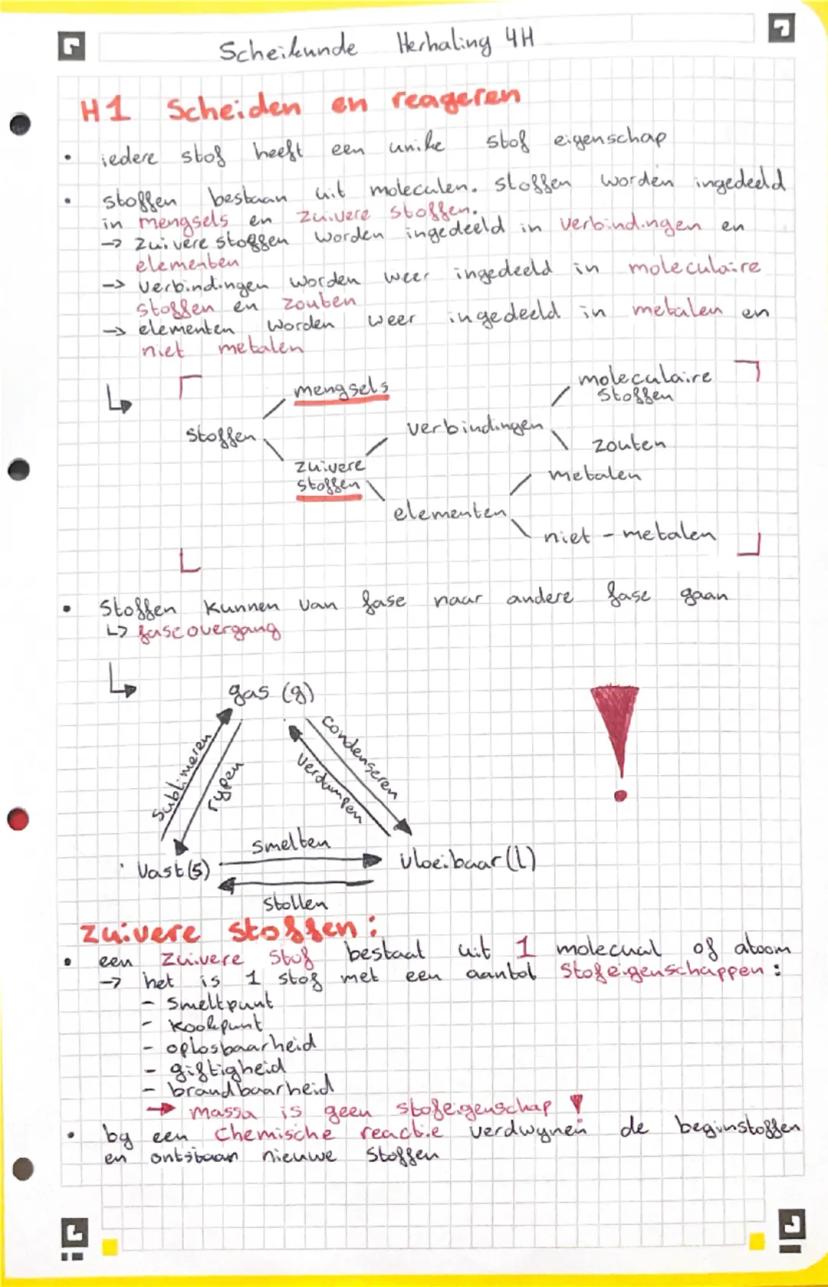 Scheikunde Herhaling 4H
H1 Scheiden en reageren
• iedere stof heeft een unike stof eigenschap
• stoffen bestaan uit moleculen. stoffen worden ingedeeld
in mengsels en zuivere stoffen.
→ zuivere stoffen worden ingedeeld in verbindingen en
elementen
→ verbindingen worden weer ingedeeld in moleculaire
stoffen en zouten
→ elementen worden weer ingedeeld in metalen en
niet metalen
moleculaire
stoffen
mengsels
stoffen
verbindingen
zouten
zuivere
stoffen
metalen
elementen
niet - metalen
• Stoffen kunnen van fase naar andere fase gaan
↳ faseovergang
gas (g)
sublimeren
rypen
condenseren
verdampen
smelten
vast (s)
vloeibaar (l)
stollen
zuivere stoffen:
• een zuivere stof bestaat uit 1 molecuul of atoom
→ het is 1 stof met een aantal stofeigenschappen:
- smeltpunt
- kookpunt
- oplosbaarheid
- giftigheid
- brandbaarheid
→ massa is geen stofeigenschap !
• by een chemische reactie verdwynen de beginstoffen
en ontstaan nieuwe stoffen